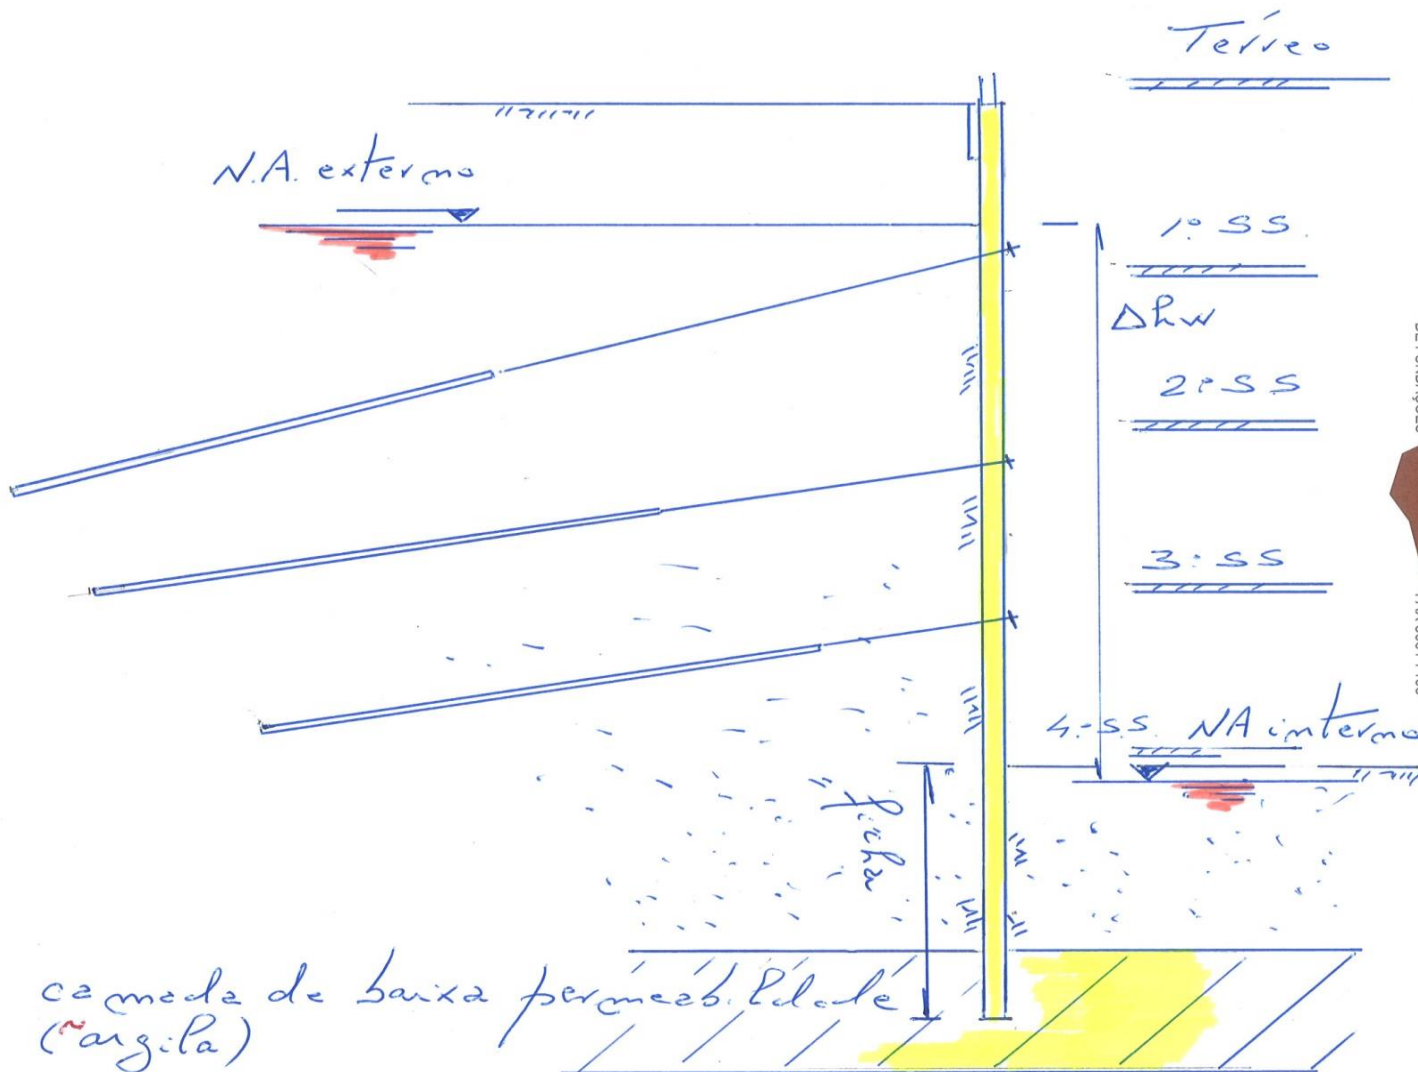 Térreo
N.A. externo
1º SS.
Δhw
2º SS
3º SS
4º S.S. NA interno
ficha
camada de baixa permeabilidade
(~argila)